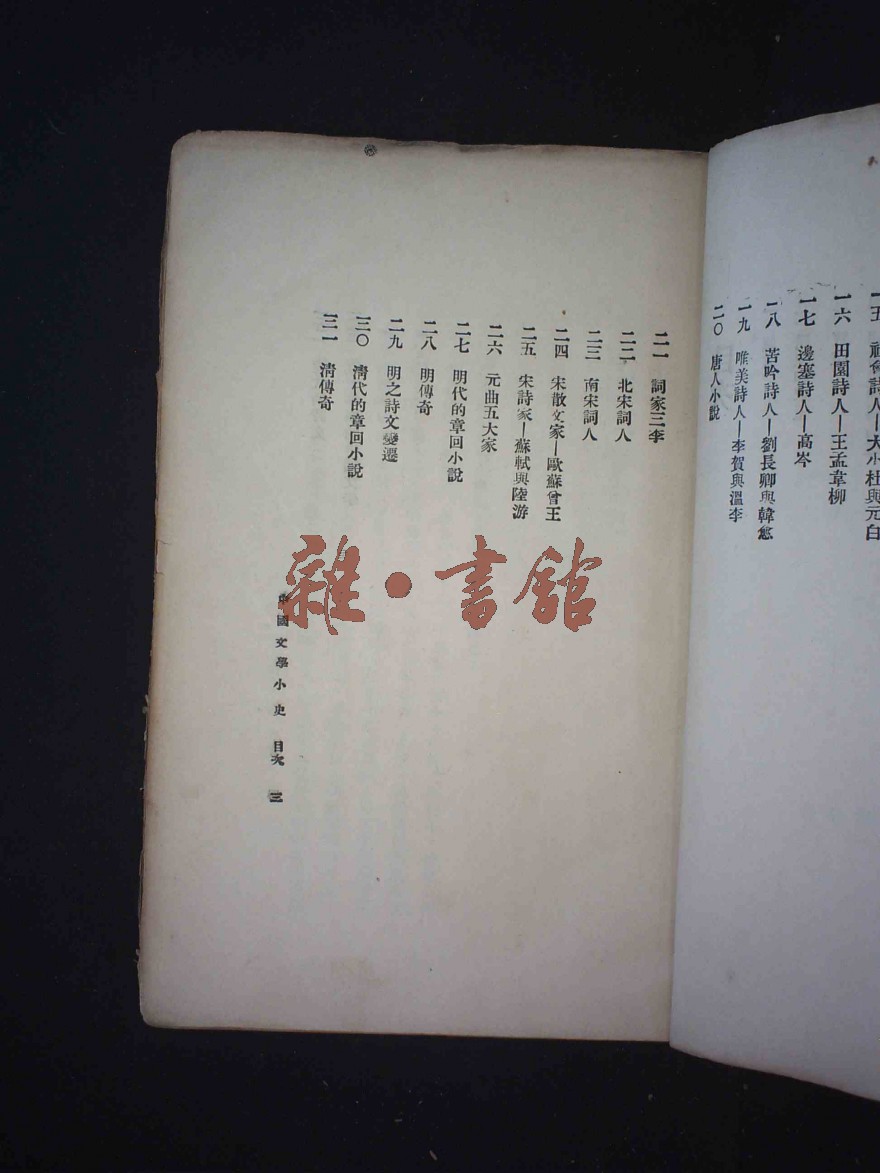 一五　社會詩人—大小杜與元白
一六　田園詩人—王孟韋柳
一七　邊塞詩人—高岑
一八　苦吟詩人—劉長卿與韓愈
一九　唯美詩人—李賀與溫李
二〇　唐人小說
二一　詞家三李
二二　北宋詞人
二三　南宋詞人
二四　宋散文家—歐蘇曾王
二五　宋詩家—蘇軾與陸游
二六　元曲五大家
二七　明代的章回小說
二八　明傳奇
二九　明之詩文變遷
三〇　清代的章回小說
三一　清傳奇
中國文學小史　目次　三
雜·書館